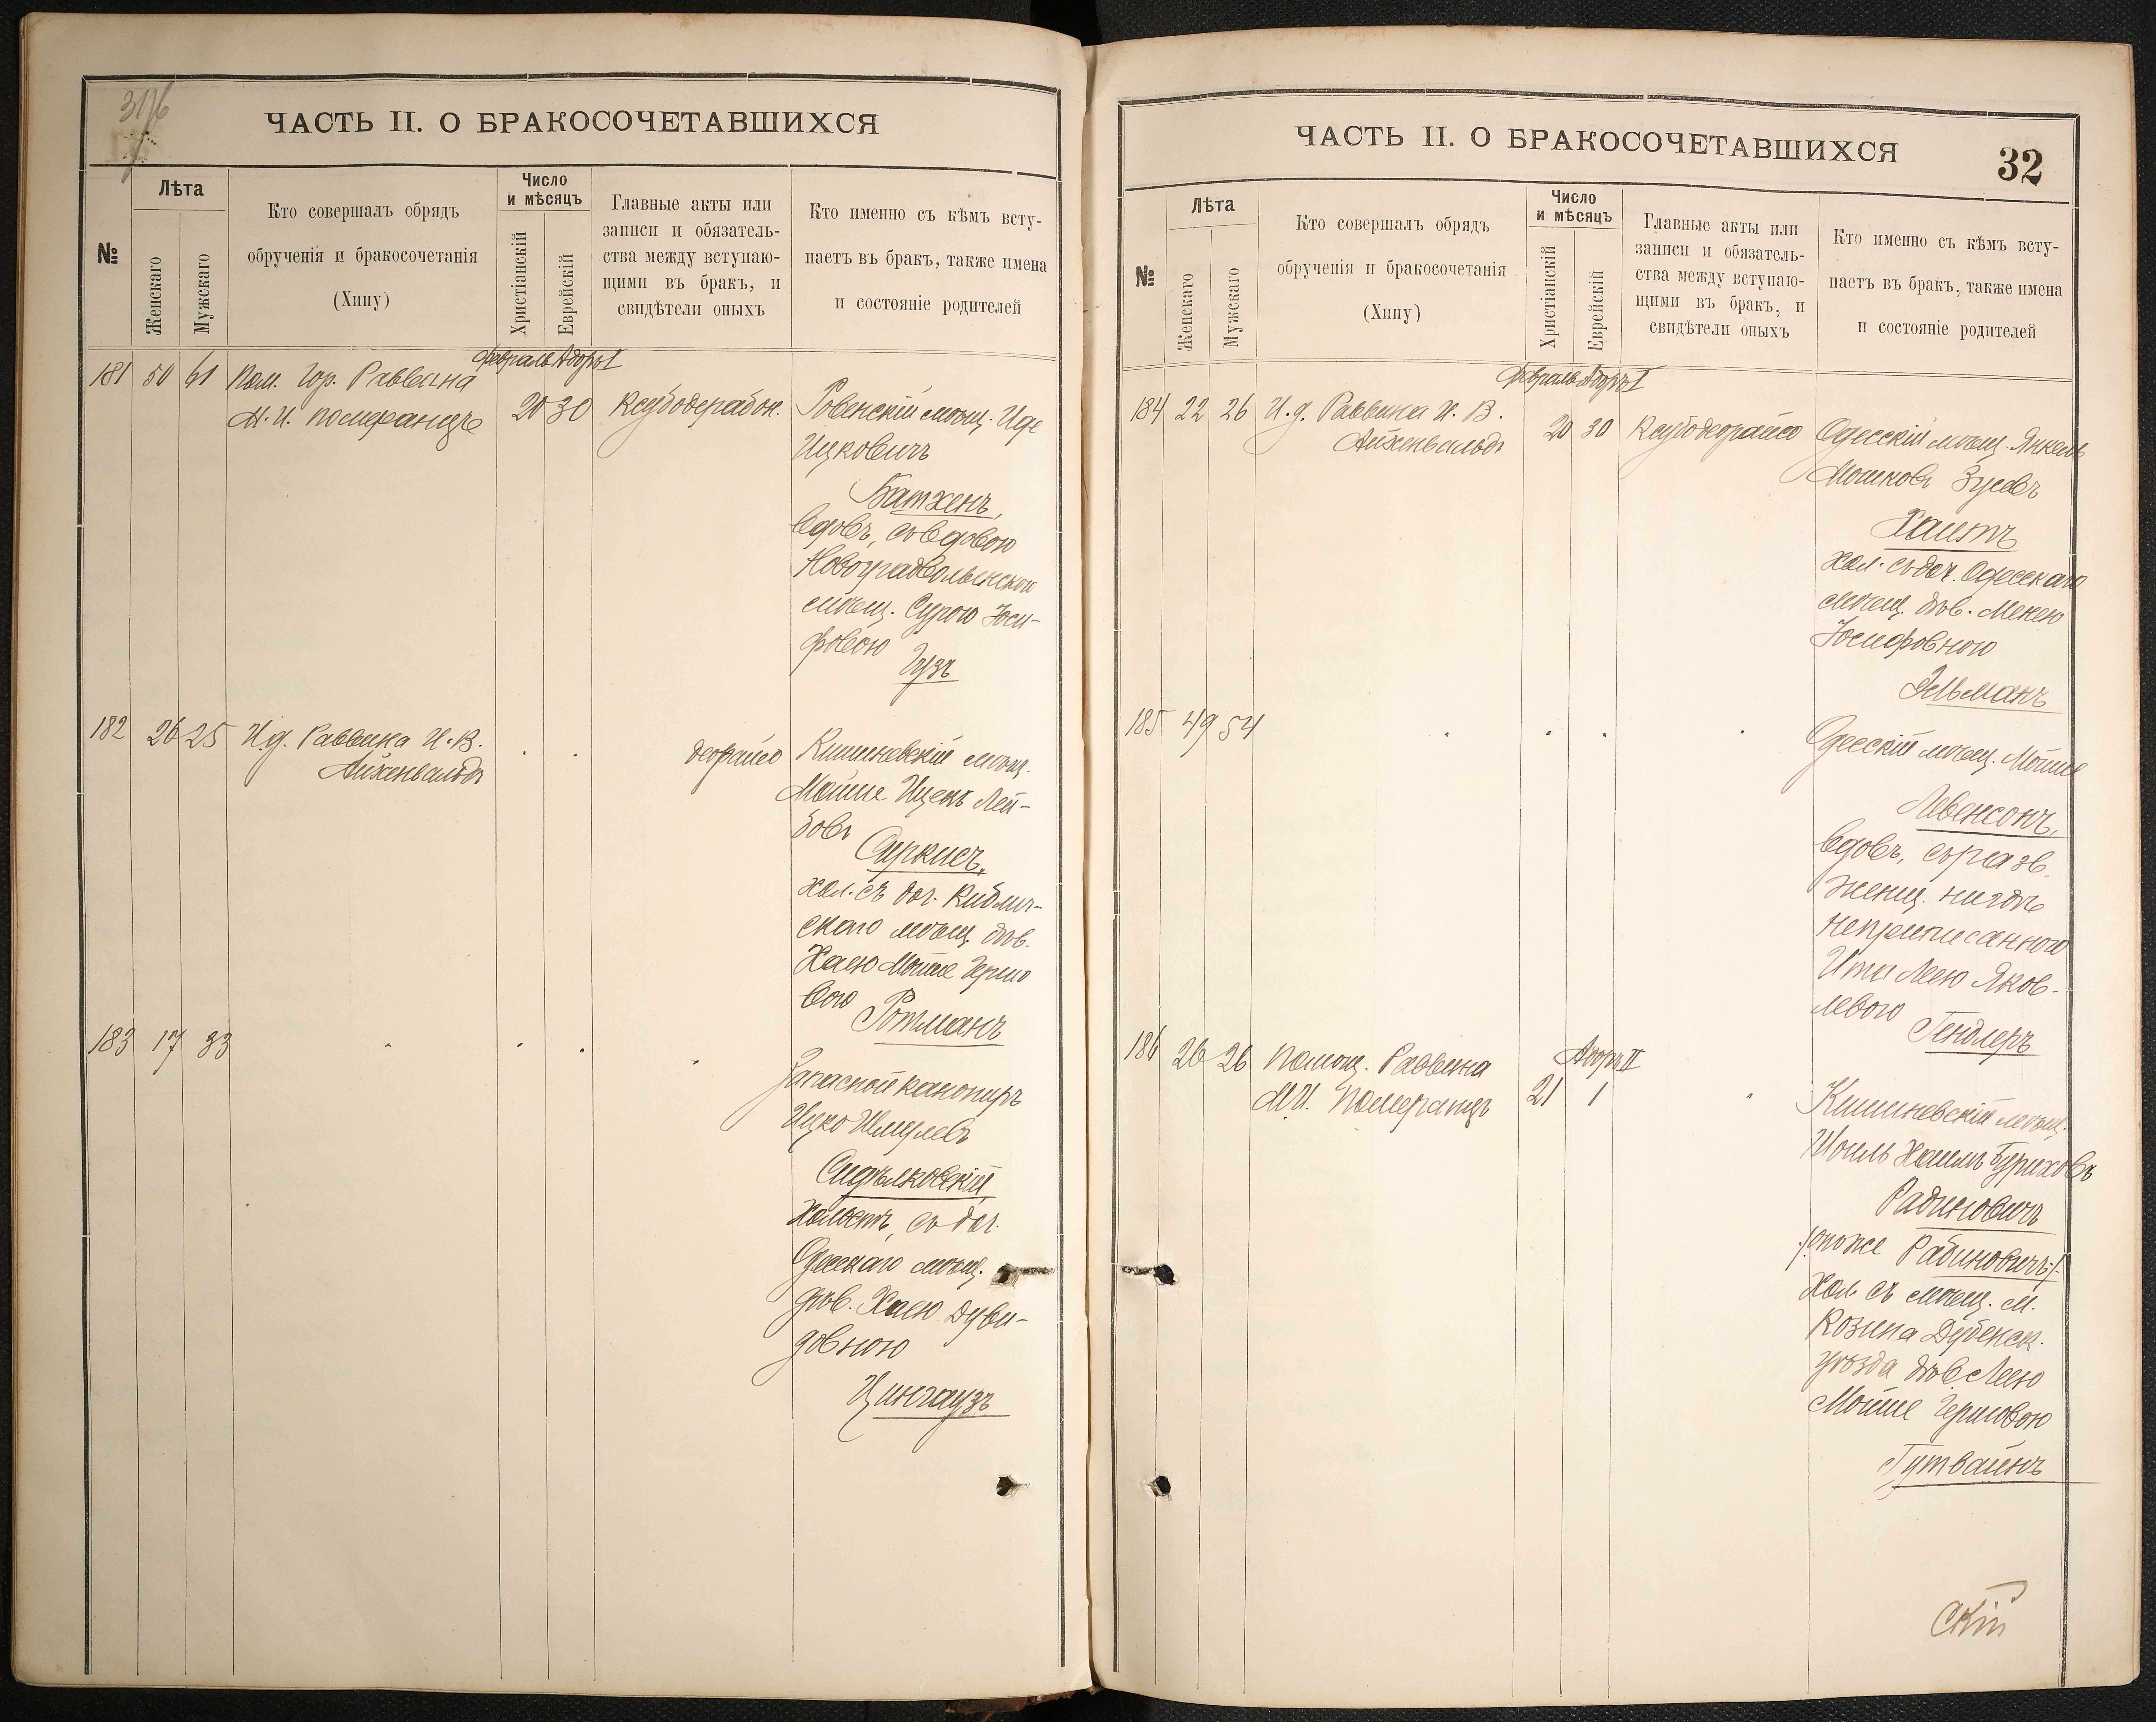 ЧАСТЬ II. О БРАКОСОЧЕТАВШИХСЯ
№
Лѣта
Женскаго
Мужскаго
Кто совершалъ обрядъ
обрученія и бракосочетанія
(Хипу)
Число
и мѣсяцъ
Христіанскій
Еврейскій
Главные акты или
записи и обязатель-
ства между вступаю-
щими въ бракъ, и
свидѣтели оныхъ
Кто именно съ кѣмъ всту-
паетъ въ бракъ, также имена
и состояніе родителей
Февраль Адаръ I
181 50 61 Пом. Гор. Раввина
М. И. Померанцъ 20 30
Ровенскій мѣщ. Иде
Ицковичъ
Батхенъ,
вдовъ, съ вдовою
Новоградволынского
мѣщ. Сурою Іоси-
фовою
Гузъ
182 26 25 И.д. Раввина И. В.
Айхенвальдъ
деорайсо
Кишиневскій мѣщ.
Мойше Ицекъ Лей-
бовъ
Суркисъ,
хол. съ доч. Кибли-
скаго мѣщ. дѣв.
Хаею Мойше Герио
вою
Ротманъ
183 17 33
Запасной канониръ
Ицко Шмулевъ
холостъ, съ доч.
Одесскаго мѣщ.
дѣв. Хаею Дуви-
довною
Цингаузъ
ЧАСТЬ II. О БРАКОСОЧЕТАВШИХСЯ
32
№
Лѣта
Женскаго
Мужскаго
Кто совершалъ обрядъ
обрученія и бракосочетанія
(Хипу)
Число
и мѣсяцъ
Христіанскій
Еврейскій
Главные акты или
записи и обязатель-
ства между вступаю-
щими въ бракъ, и
свидѣтели оныхъ
Кто именно съ кѣмъ всту-
паетъ въ бракъ, также имена
и состояніе родителей
Февраль Адаръ I
184 22 26 И.д. Раввина И. В.
Айхенвальдъ 20 30 Ксубодеорайсо
Одесскій мѣщ. Янкель
Мошковъ Зусевъ
Хаитъ
хол. съ доч. Одесскаго
мѣщ. дѣв. Менею
Іосифовною
Зельманъ
185 49 54
Одесскій мѣщ. Мойше
Левенсонъ,
вдовъ, съ разв.
женщ. нигдѣ
неприписанного
Ита Леею Яков-
левого
Гендлеръ
186 26 26 Помощ. Раввина
М.И. Померанцъ
Адаръ II
21 1
Кишиневскій мѣщ.
Шоиль Хаимъ Бруховъ
Радиновичъ
/:онъ же Рабиновичъ:/
хол. съ мѣщ. м.
Козина Дубенск.
уѣзда дѣв. Леею
Мойше Гершовою
Гутвайнъ
скій